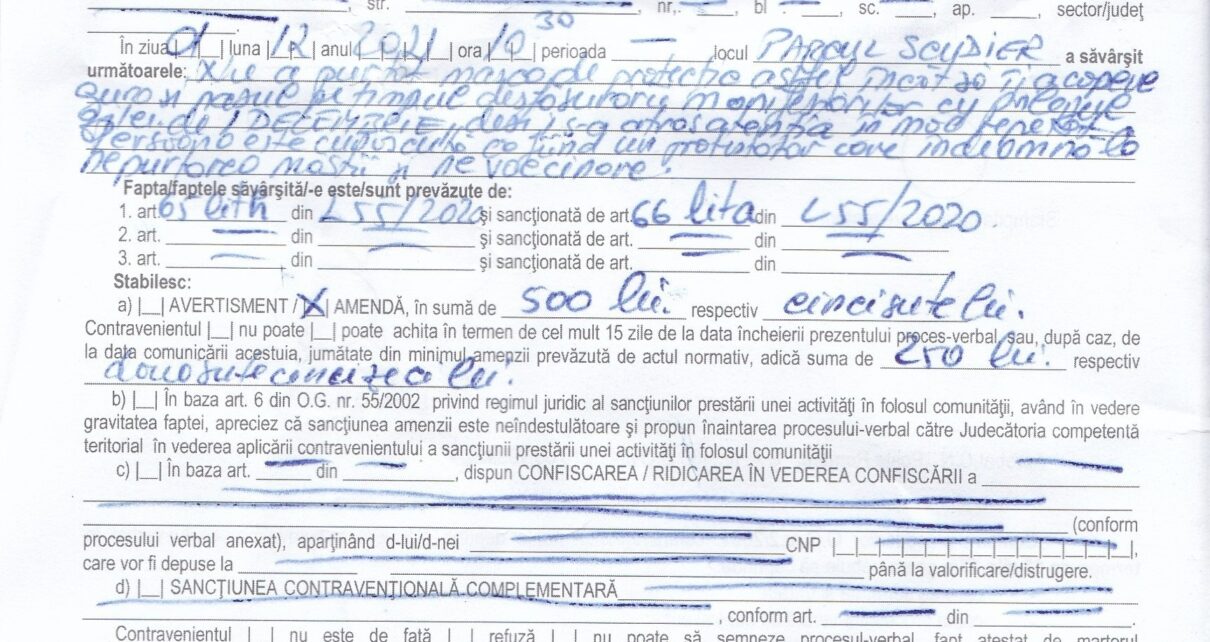 str. nr,. bl . sc. ap. sector/judeţ
În ziua 01 luna 12 anul 2021 ora 10 30 perioada — locul PARCUL SCUDIER a săvârşit
următoarele: X/ nu a purtat masca de protectie astfel încat să îi acopere
gura si nasul pe timpul desfasurarii manifestarilor cu prilejul
zilei de 1 DECEMBRIE, desi s-a atras atentia în mod repetat.
Persoana este cunoscuta ca fiind un protestatar care îndeamna la
nepurtarea mastii si ne vaccinare.
Fapta/faptele săvârşită/-e este/sunt prevăzute de:
1. art. 65 lit h din L 55/2020 şi sancţionată de art. 66 lit a din L 55/2020
2. art. din şi sancţionată de art. din
3. art. din şi sancţionată de art. din
Stabilesc:
a) |__| AVERTISMENT / |X| AMENDĂ, în sumă de 500 lei. respectiv cincisute lei.
Contravenientul |__| nu poate |__| poate achita în termen de cel mult 15 zile de la data încheierii prezentului proces-verbal sau, după caz, de
la data comunicării acestuia, jumătate din minimul amenzii prevăzută de actul normativ, adică suma de 250 lei. respectiv
douasutecincizeci lei.
b) |__| În baza art. 6 din O.G. nr. 55/2002 privind regimul juridic al sancţiunilor prestării unei activităţi în folosul comunităţii, având în vedere
gravitatea faptei, apreciez că sancţiunea amenzii este neîndestulătoare şi propun înaintarea procesului-verbal către Judecătoria competentă
teritorial în vederea aplicării contravenientului a sancţiunii prestării unei activităţi în folosul comunităţii
c) |__| În baza art. din , dispun CONFISCAREA / RIDICAREA ÎN VEDEREA CONFISCĂRII a
(conform
procesului verbal anexat), aparţinând d-lui/d-nei CNP |__|__|__|__|__|__|__|__|__|__|__|__|__|,
care vor fi depuse la până la valorificare/distrugere.
d) |__| SANCŢIUNEA CONTRAVENŢIONALĂ COMPLEMENTARĂ
, conform art. din
Contravenientul |__| nu este de faţă |__| refuză |__| nu poate să semneze procesul-verbal, fapt atestat de martorul